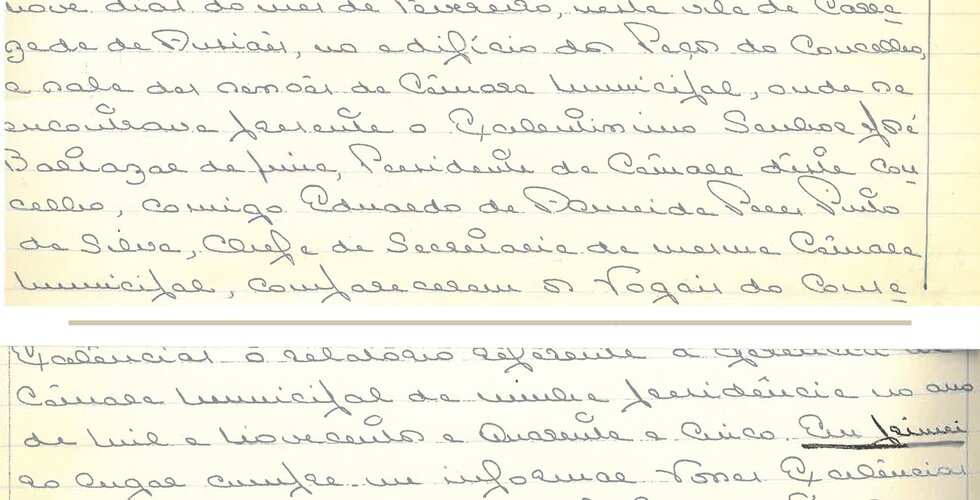 nove dias do mez de Fevereiro, nesta vila de Carra-
zeda de Anciães, no edifício dos Paços do Concelho,
e sala das sessões da Câmara Municipal, onde se
encontrava presente o Excelentissimo Senhor José
Baltazar de Lima, Presidente da Câmara dêste con-
celho, comigo Eduardo de Almeida Paes Pinto
da Silva, Chefe da Secretaria da mesma Câmara
Municipal, compareceram os Vogais do Conse-
Excelências o relatório referente á gerência
Câmara Municipal da minha presidência no ano
de Mil e Novecentos e Quarenta e Cinco. Em primei
ro lugar cumpre-me informar Vossas Excelências